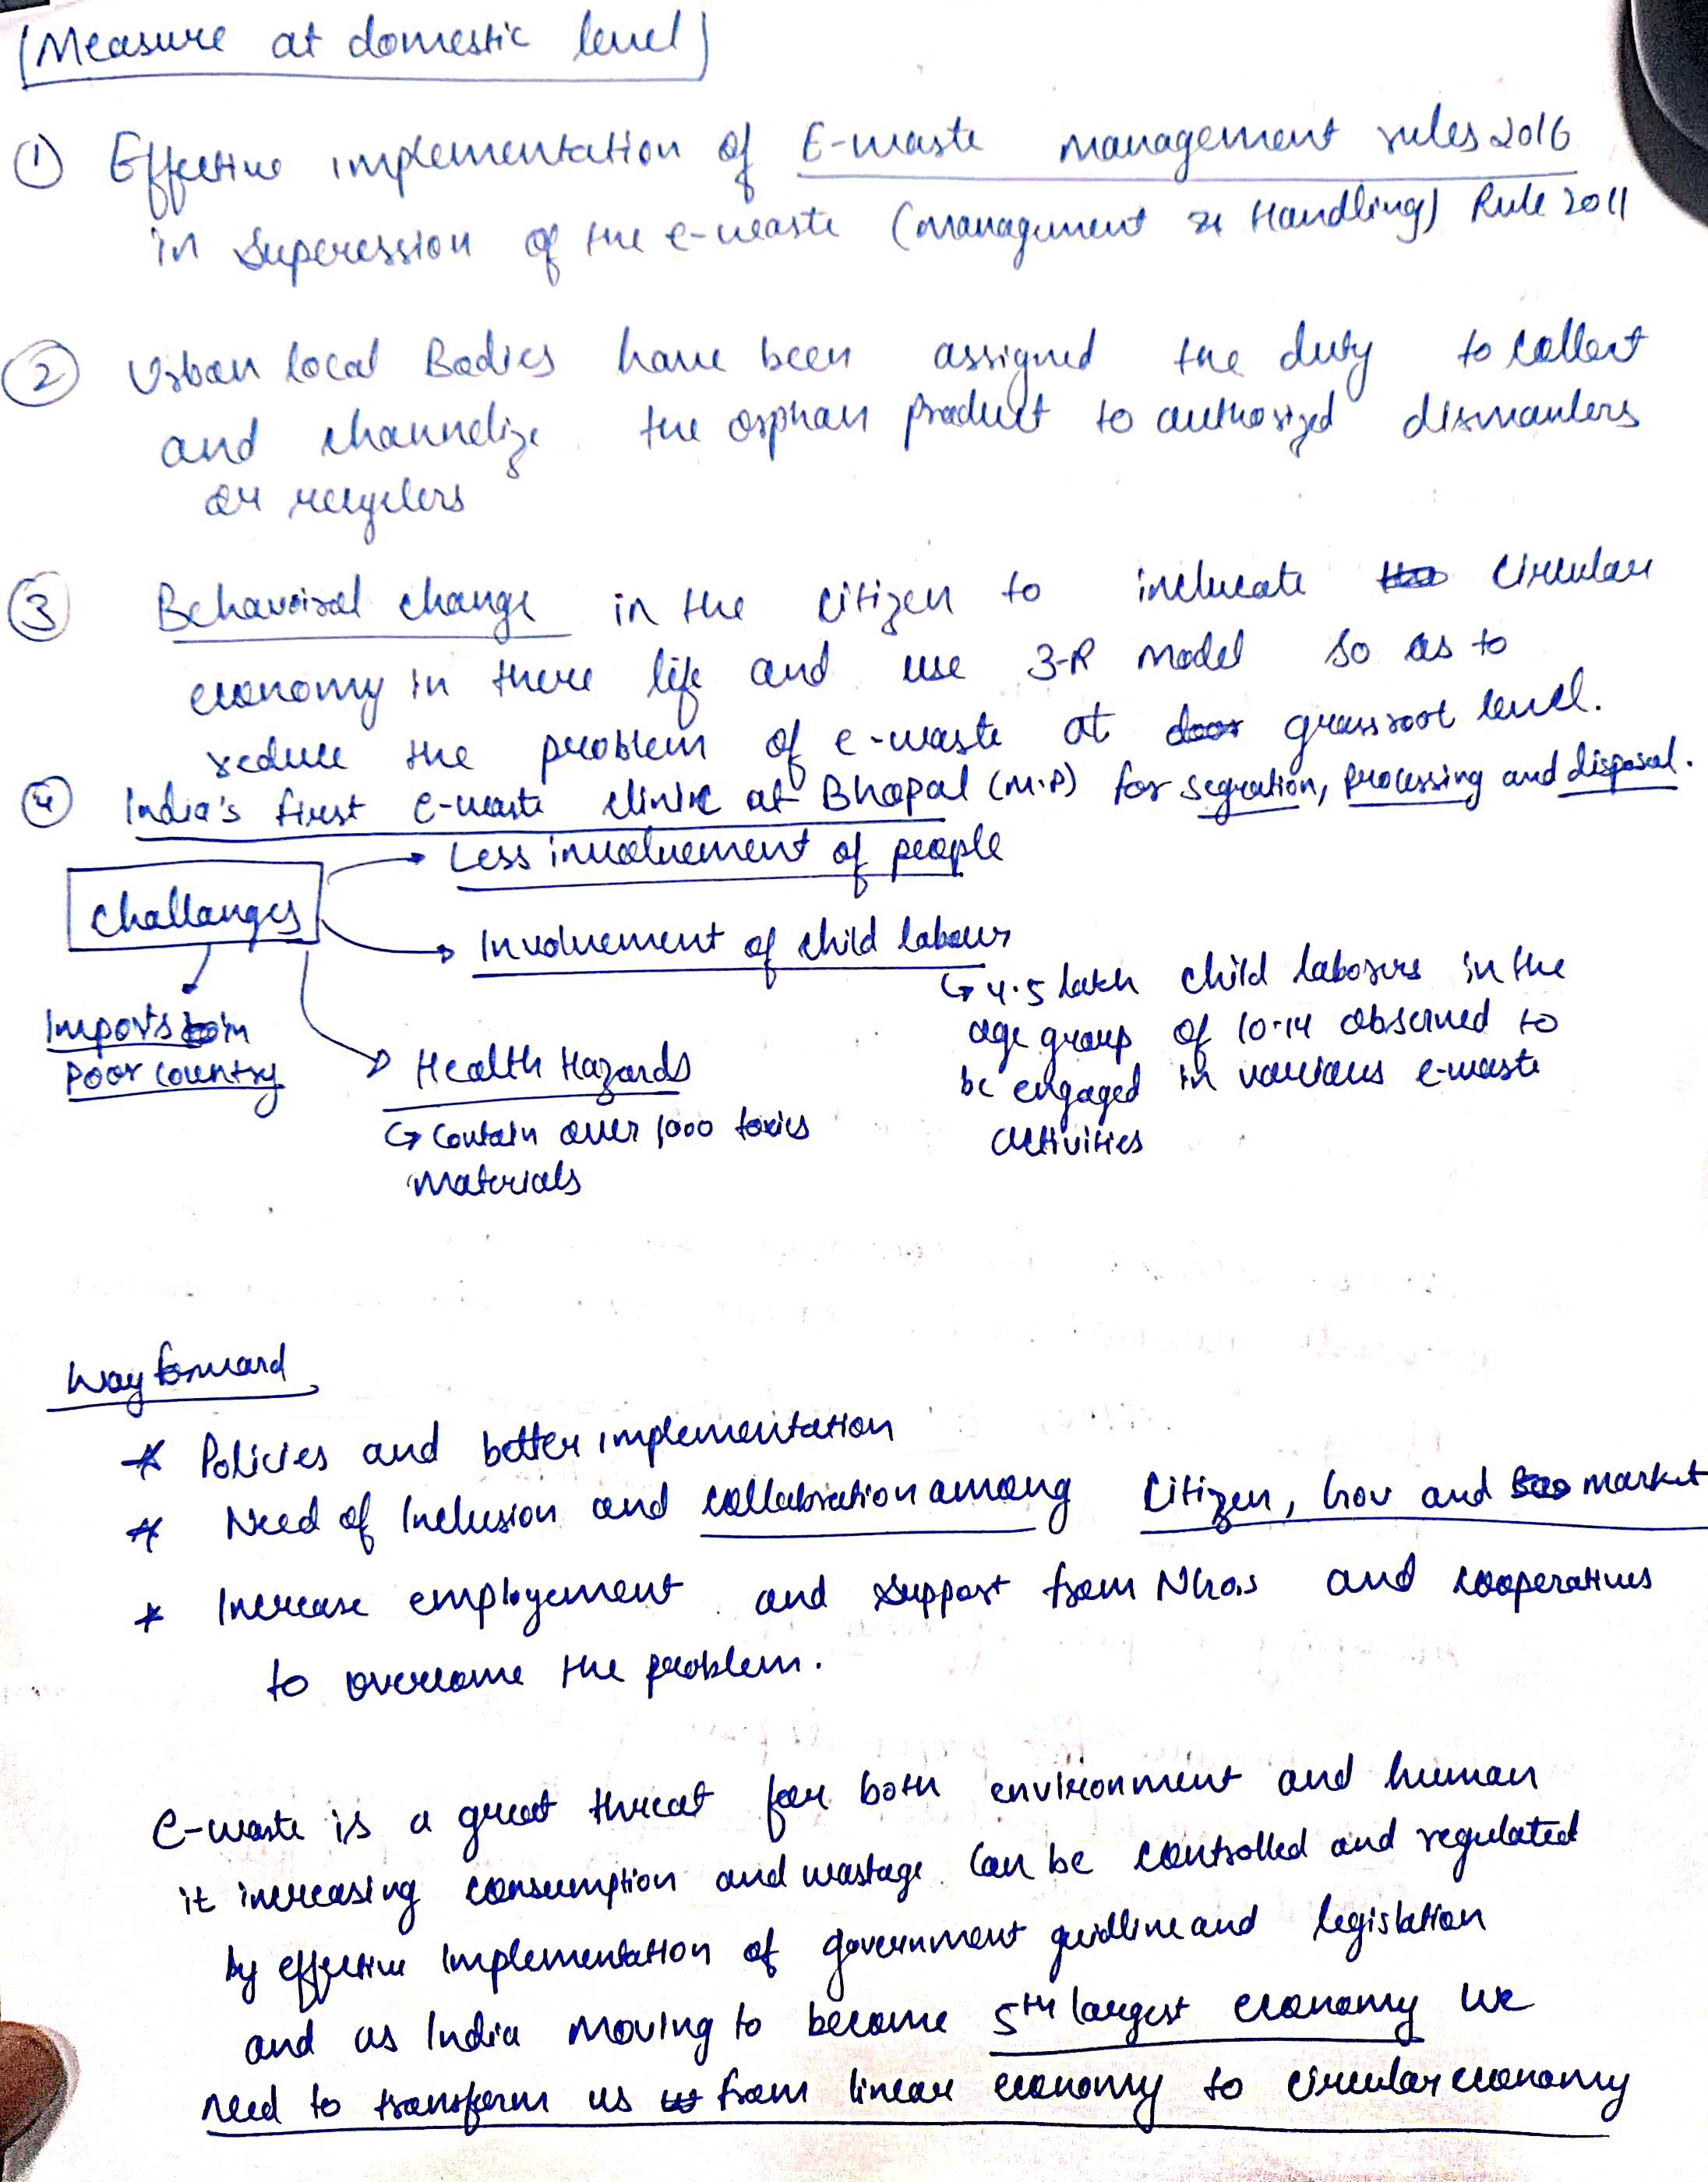 Measure at domestic level
① Effective implementation of E-waste management rules 2016
in Superession of the e-waste (Management & Handling) Rule 2011
② Urban local Bodies have been assigned the duty to collect
and channelize the orphan product to authorized dismantlers
or recyclers
③ Behavoiral change in the citizen to inclucate circular
economy in there life and use 3-R model so as to
reduce the problem of e-waste at grassroot level.
④ India's first e-waste clinic at Bhopal (M.P) for segration, processing and disposal.
Challanges
Less involvement of people
Involvement of child labour
↳ 4.5 lakh child laborurs in the
age group of 10-14 observed to
be engaged in various e-waste
activities
Imports in
Poor country
Health Hazards
↳ Contain over 1000 toxics
materials
Way forward
* Policies and better implementation
* Need of Inclusion and collabration among Citizen, Gov and market
* Increase employement and support from NGO.s and cooperatives
to overcome the problem.
E-waste is a great threat for both environment and human
it increasing consumption and wastage. Can be controlled and regulated
by effective implementation of government guidline and legislation
and as India moving to become 5th largest economy we
need to transform us from linear economy to circular economy